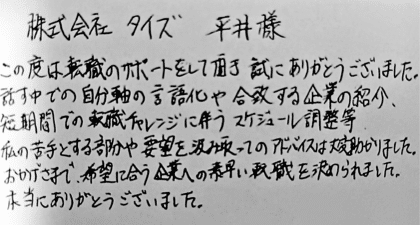 株式会社 タイズ 平井様
この度は転職のサポートをして頂き 試にありがとうございました。
話す中での自分軸の言語化や 合致する企業の紹介、
短期間での転職チャレンジに伴う スケジュール調整等
私の苦手とする部分や要望を汲み取ってのアドバイスは大変助かりました。
おかげさまで、希望に合う企業への素早い転職を決められました。
本当にありがとうございました。